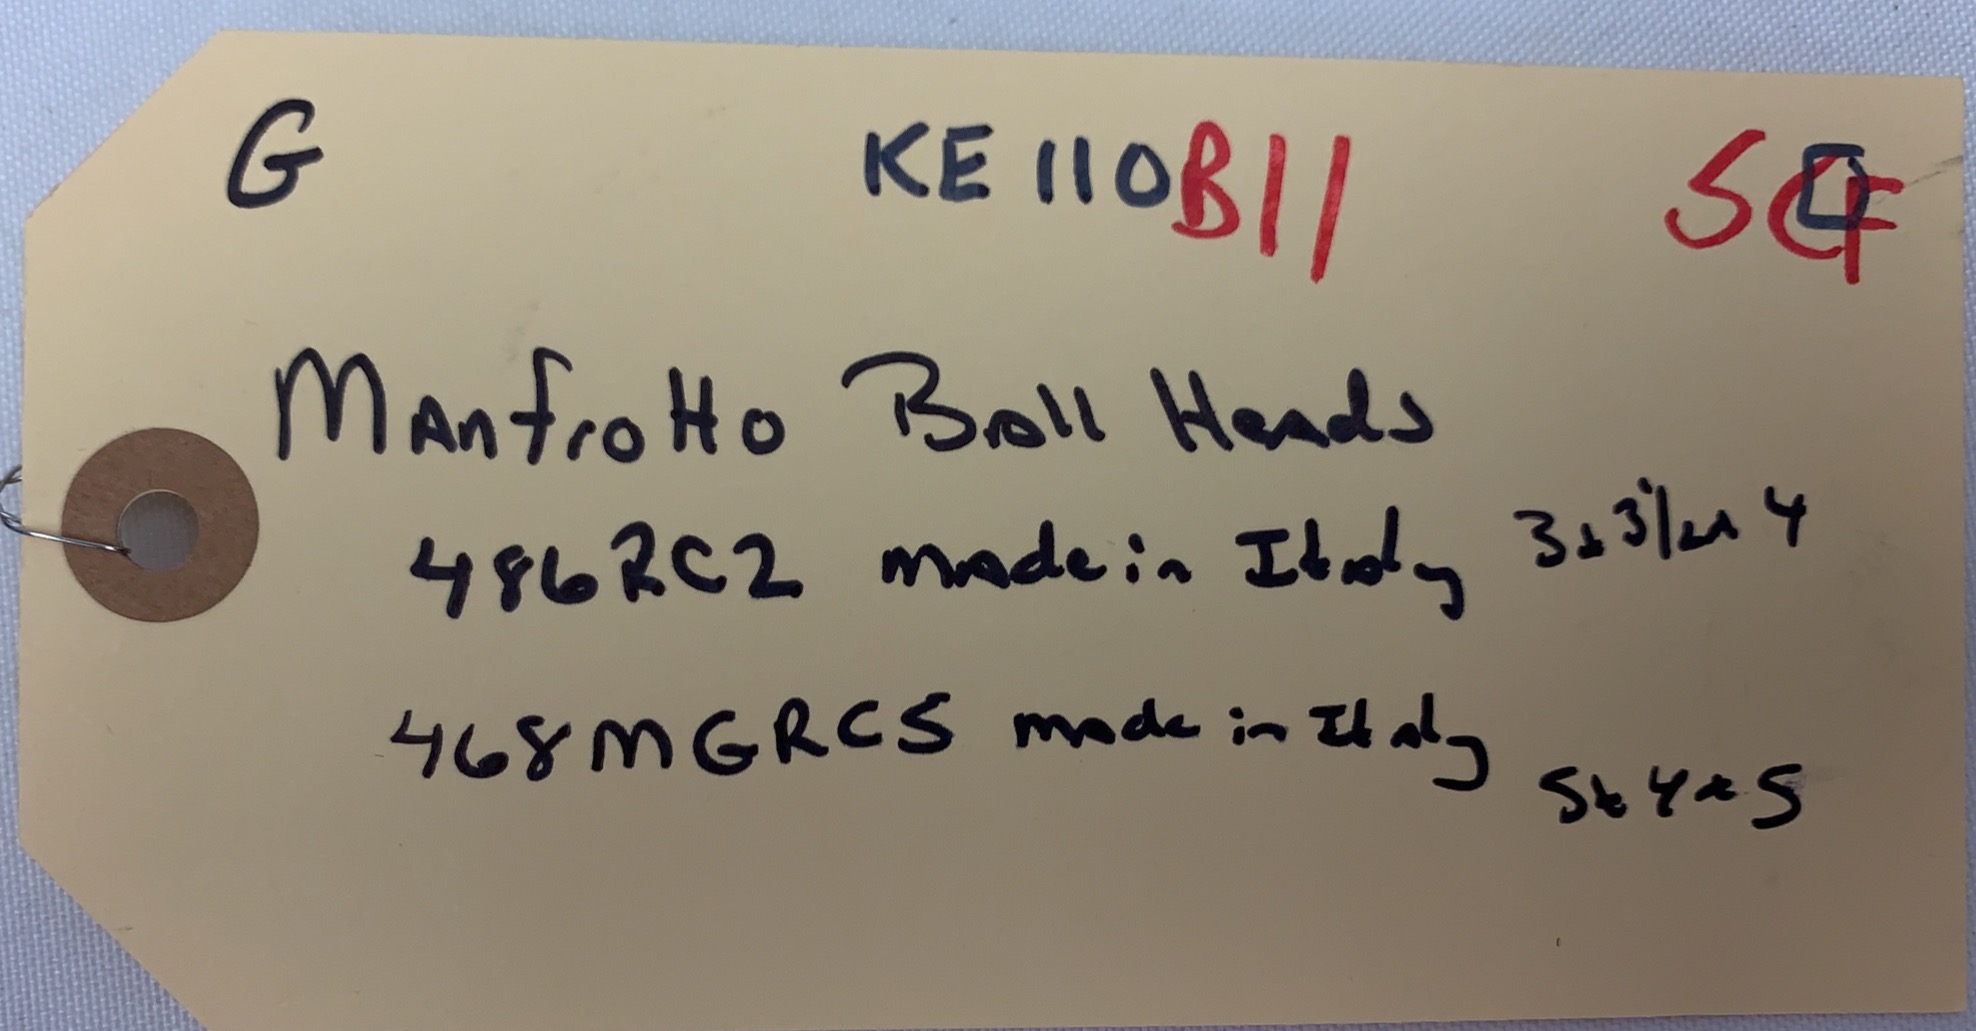 G KE110B11 SCF
Manfrotto Ball Heads
486RC2 made in Italy 3x3 1/2x4
468MGRC5 made in Italy
5x4x5